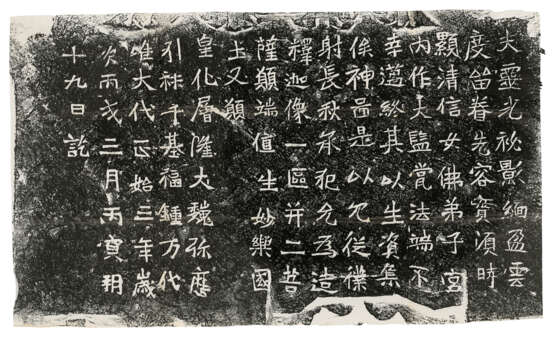 夫靈光祕影緬盈雲
度留眷先容實須時
顯清信女佛弟子宮
內作大監瓽法端不
幸遘終其以生資集
保神啚是以兄從僕
射長秋承祀允為造
釋迦像一區并二菩
薩願端值生妙樂國
土又願
皇化層隆大魏弥歷
引祚千基福鍾万代
唯大代正始三年歲
次丙戌三月丙寅朔
十九日訖